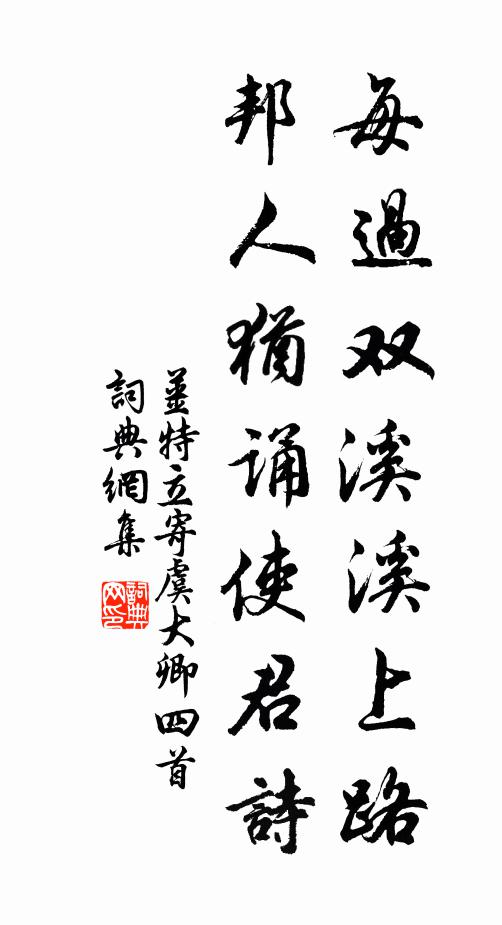 每過双溪溪上路
邦人猶诵使君詩
姜特立寄虞大卿四首
詞典網集
詞典网印